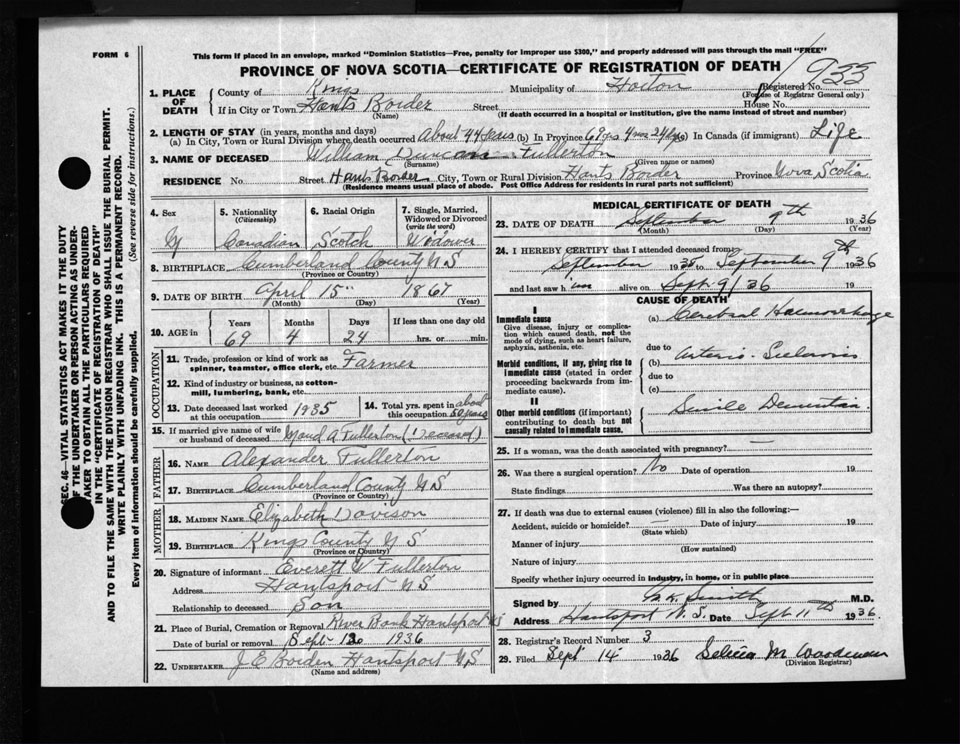 FORM 6
This form if placed in an envelope, marked "Dominion Statistics—Free, penalty for improper use $300," and properly addressed will pass through the mail "FREE"
PROVINCE OF NOVA SCOTIA—CERTIFICATE OF REGISTRATION OF DEATH
933
1. PLACE OF DEATH
County of Kings Municipality of Horton Registered No.
(For use of Registrar General only)
If in City or Town Hants Border Street House No.
(Name) (If death occurred in a hospital or institution, give the name instead of street and number)
2. LENGTH OF STAY (in years, months and days)
(a) In City, Town or Rural Division where death occurred About 44 years (b) In Province 69 yrs 4 mos 24 dys (c) In Canada (if immigrant) Life
3. NAME OF DECEASED William Duncan Fullerton
(Surname) (Given name or names)
RESIDENCE No. Street Hants Border City, Town or Rural Division Hants Border Province Nova Scotia
(Residence means usual place of abode. Post Office Address for residents in rural parts not sufficient)
4. Sex 5. Nationality (Citizenship) 6. Racial Origin 7. Single, Married, Widowed or Divorced (write the word)
Canadian Scotch Widower
8. BIRTHPLACE Cumberland County N S
(Province or Country)
9. DATE OF BIRTH April 15" 1867
(Month) (Day) (Year)
10. AGE in Years Months Days If less than one day old
69 4 24 hrs. or min.
OCCUPATION
11. Trade, profession or kind of work as spinner, teamster, office clerk, etc. Farmer
12. Kind of industry or business, as cotton-mill, lumbering, bank, etc.
13. Date deceased last worked at this occupation 1935
14. Total yrs. spent in this occupation about 50 years
15. If married give name of wife or husband of deceased Maud A Fullerton (Deceased)
FATHER
16. NAME Alexander Fullerton
17. BIRTHPLACE Cumberland County N S
(Province or Country)
MOTHER
18. MAIDEN NAME Elizabeth Davison
19. BIRTHPLACE Kings County N S
(Province or Country)
20. Signature of informant Everett V Fullerton
Address Hantsport N S
Relationship to deceased Son
21. Place of Burial, Cremation or Removal River Bank Hantsport N S
Date of burial or removal Sept 12 1936
22. UNDERTAKER J E Borden Hantsport N S
(Name and address)
MEDICAL CERTIFICATE OF DEATH
23. DATE OF DEATH September 9th 1936
(Month) (Day) (Year)
24. I HEREBY CERTIFY that I attended deceased from
September 1935 to September 9th 1936
and last saw h im alive on Sept. 9/36 19
CAUSE OF DEATH
I
Immediate cause
Give disease, injury or complication which caused death, not the mode of dying, such as heart failure, asphyxia, asthenia, etc.
(a) Cerebral Haemorrhage
due to
Morbid conditions, if any, giving rise to immediate cause (stated in order proceeding backwards from immediate cause).
(b) Arterio-Sclerosis
due to
(c)
II
Other morbid conditions (if important) contributing to death but not causally related to immediate cause.
Senile Dementia
25. If a woman, was the death associated with pregnancy? —
26. Was there a surgical operation? No Date of operation 19
State findings Was there an autopsy?
27. If death was due to external causes (violence) fill in also the following:—
Accident, suicide or homicide? — Date of injury 19
(State which)
Manner of injury
(How sustained)
Nature of injury
Specify whether injury occurred in industry, in home, or in public place
Signed by Smith M.D.
Address Hantsport N.S. Date Sept 11th 1936
28. Registrar's Record Number 3
29. Filed Sept 14 1936 Selina M Woodman
(Division Registrar)
SEC. 46—VITAL STATISTICS ACT MAKES IT THE DUTY
OF THE UNDERTAKER OR PERSON ACTING AS UNDER-
TAKER TO OBTAIN ALL THE PARTICULARS REQUIRED
IN THE "CERTIFICATE OF REGISTRATION OF DEATH"
AND TO FILE THE SAME WITH THE DIVISION REGISTRAR WHO SHALL ISSUE THE BURIAL PERMIT.
WRITE PLAINLY WITH UNFADING INK. THIS IS A PERMANENT RECORD.
Every item of information should be carefully supplied. (See reverse side for instructions.)